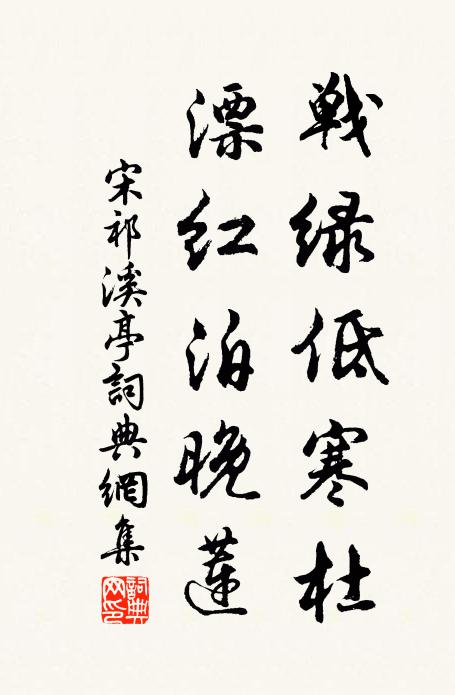 戦緑低寒杜
漂紅泊晚蓮
宋祁溪亭詞典網集
詞典網印